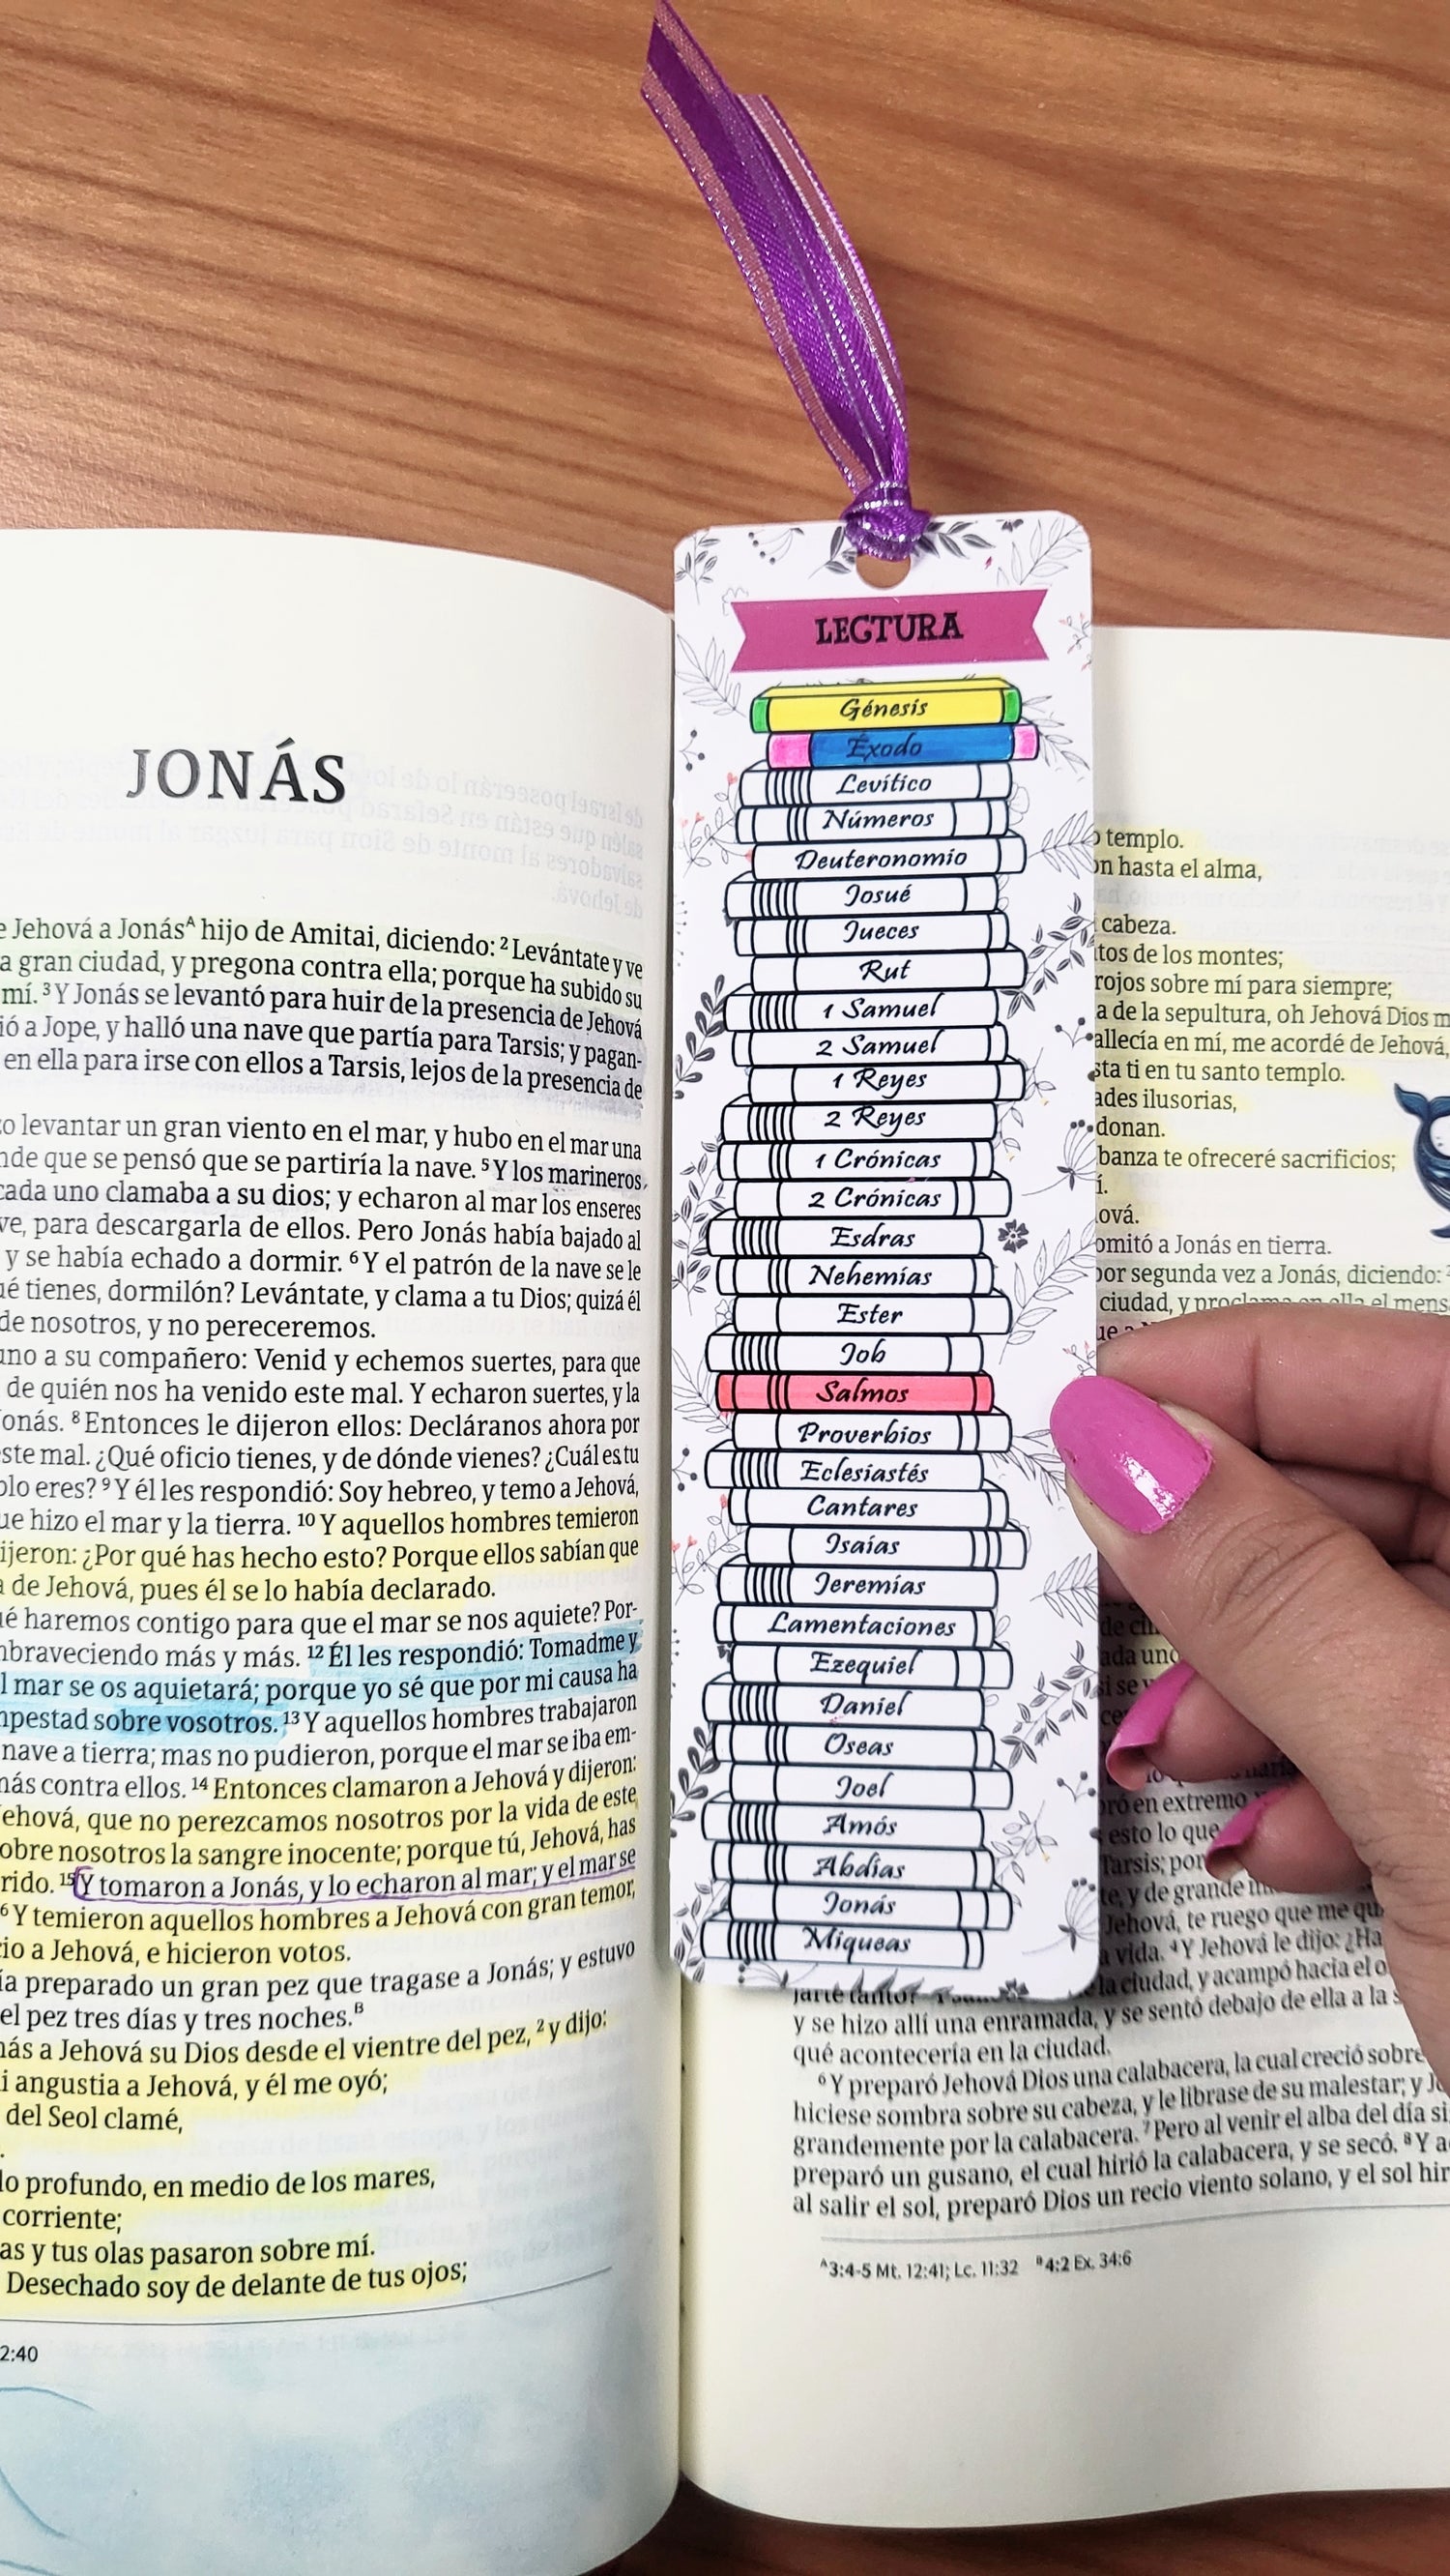 JONÁS
e Jehová a Jonásᴬ hijo de Amitai, diciendo: ² Levántate y ve
a gran ciudad, y pregona contra ella; porque ha subido su
mí. ³ Y Jonás se levantó para huir de la presencia de Jehová
ió a Jope, y halló una nave que partía para Tarsis; y pagan-
en ella para irse con ellos a Tarsis, lejos de la presencia de
o levantar un gran viento en el mar, y hubo en el mar una
nde que se pensó que se partiría la nave. ⁵ Y los marineros
cada uno clamaba a su dios; y echaron al mar los enseres
ve, para descargarla de ellos. Pero Jonás había bajado al
y se había echado a dormir. ⁶ Y el patrón de la nave se le
ué tienes, dormilón? Levántate, y clama a tu Dios; quizá él
de nosotros, y no pereceremos.
uno a su compañero: Venid y echemos suertes, para que
de quién nos ha venido este mal. Y echaron suertes, y la
Jonás. ⁸ Entonces le dijeron ellos: Decláranos ahora por
ste mal. ¿Qué oficio tienes, y de dónde vienes? ¿Cuál es tu
blo eres? ⁹ Y él les respondió: Soy hebreo, y temo a Jehová,
ue hizo el mar y la tierra. ¹⁰ Y aquellos hombres temieron
ijeron: ¿Por qué has hecho esto? Porque ellos sabían que
a de Jehová, pues él se lo había declarado.
ué haremos contigo para que el mar se nos aquiete? Por-
mbraveciendo más y más. ¹² Él les respondió: Tomadme y
l mar se os aquietará; porque yo sé que por mi causa ha
mpestad sobre vosotros. ¹³ Y aquellos hombres trabajaron
nave a tierra; mas no pudieron, porque el mar se iba em-
más contra ellos. ¹⁴ Entonces clamaron a Jehová y dijeron:
Jehová, que no perezcamos nosotros por la vida de este
obre nosotros la sangre inocente; porque tú, Jehová, has
rido. ¹⁵ Y tomaron a Jonás, y lo echaron al mar; y el mar se
⁶ Y temieron aquellos hombres a Jehová con gran temor,
cio a Jehová, e hicieron votos.
ía preparado un gran pez que tragase a Jonás; y estuvo
el pez tres días y tres noches.ᴮ
nás a Jehová su Dios desde el vientre del pez, ² y dijo:
i angustia a Jehová, y él me oyó;
del Seol clamé,
lo profundo, en medio de los mares,
corriente;
as y tus olas pasaron sobre mí.
Desechado soy de delante de tus ojos;
2:40
LECTURA
Génesis
Éxodo
Levítico
Números
Deuteronomio
Josué
Jueces
Rut
1 Samuel
2 Samuel
1 Reyes
2 Reyes
1 Crónicas
2 Crónicas
Esdras
Nehemías
Ester
Job
Salmos
Proverbios
Eclesiastés
Cantares
Isaías
Jeremías
Lamentaciones
Ezequiel
Daniel
Oseas
Joel
Amós
Abdías
Jonás
Miqueas
o templo.
on hasta el alma,
cabeza.
tos de los montes;
rojos sobre mí para siempre;
a de la sepultura, oh Jehová Dios m
allecía en mí, me acordé de Jehová,
sta ti en tu santo templo.
ades ilusorias,
donan.
banza te ofreceré sacrificios;
í.
ová.
omitó a Jonás en tierra.
por segunda vez a Jonás, diciendo: ²
ciudad, y proclama en ella el mens
ada uno
si se
ró en extremo
esto lo que
Tarsis; por
te, y de grande
Jehová, te ruego que me qu
a vida. ⁴ Y Jehová le dijo: ¿Ha
la ciudad, y acampó hacia el o
y se hizo allí una enramada, y se sentó debajo de ella a la s
qué acontecería en la ciudad.
⁶ Y preparó Jehová Dios una calabacera, la cual creció sobre
hiciese sombra sobre su cabeza, y le librase de su malestar; y J
grandemente por la calabacera. ⁷ Pero al venir el alba del día si
preparó un gusano, el cual hirió la calabacera, y se secó. ⁸ Y a
al salir el sol, preparó Dios un recio viento solano, y el sol hir
ᴬ3:4-5 Mt. 12:41; Lc. 11:32 ᴮ4:2 Ex. 34:6